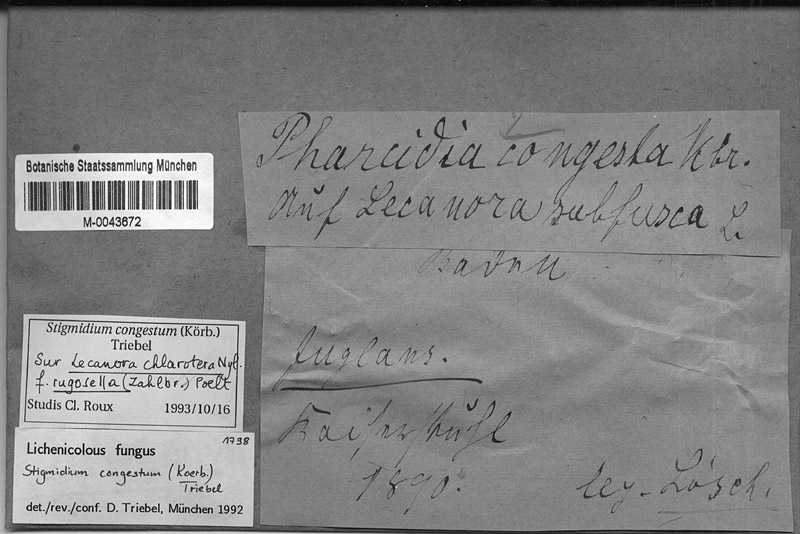 Pharcidia congesta Kbr.
Auf Lecanora subfusca L.
Baden
Juglans.
Kaiserstuhl
1890.
leg. Lösch.
Botanische Staatssammlung München
M-0043672
Stigmidium congestum (Körb.)
Triebel
Sur Lecanora chlarotera Nyl.
f. rugosella (Zahlbr.) Poelt
Studis Cl. Roux 1993/10/16
1798
Lichenicolous fungus
Stigmidium congestum (Koerb.)
Triebel
det./rev./conf. D. Triebel, München 1992